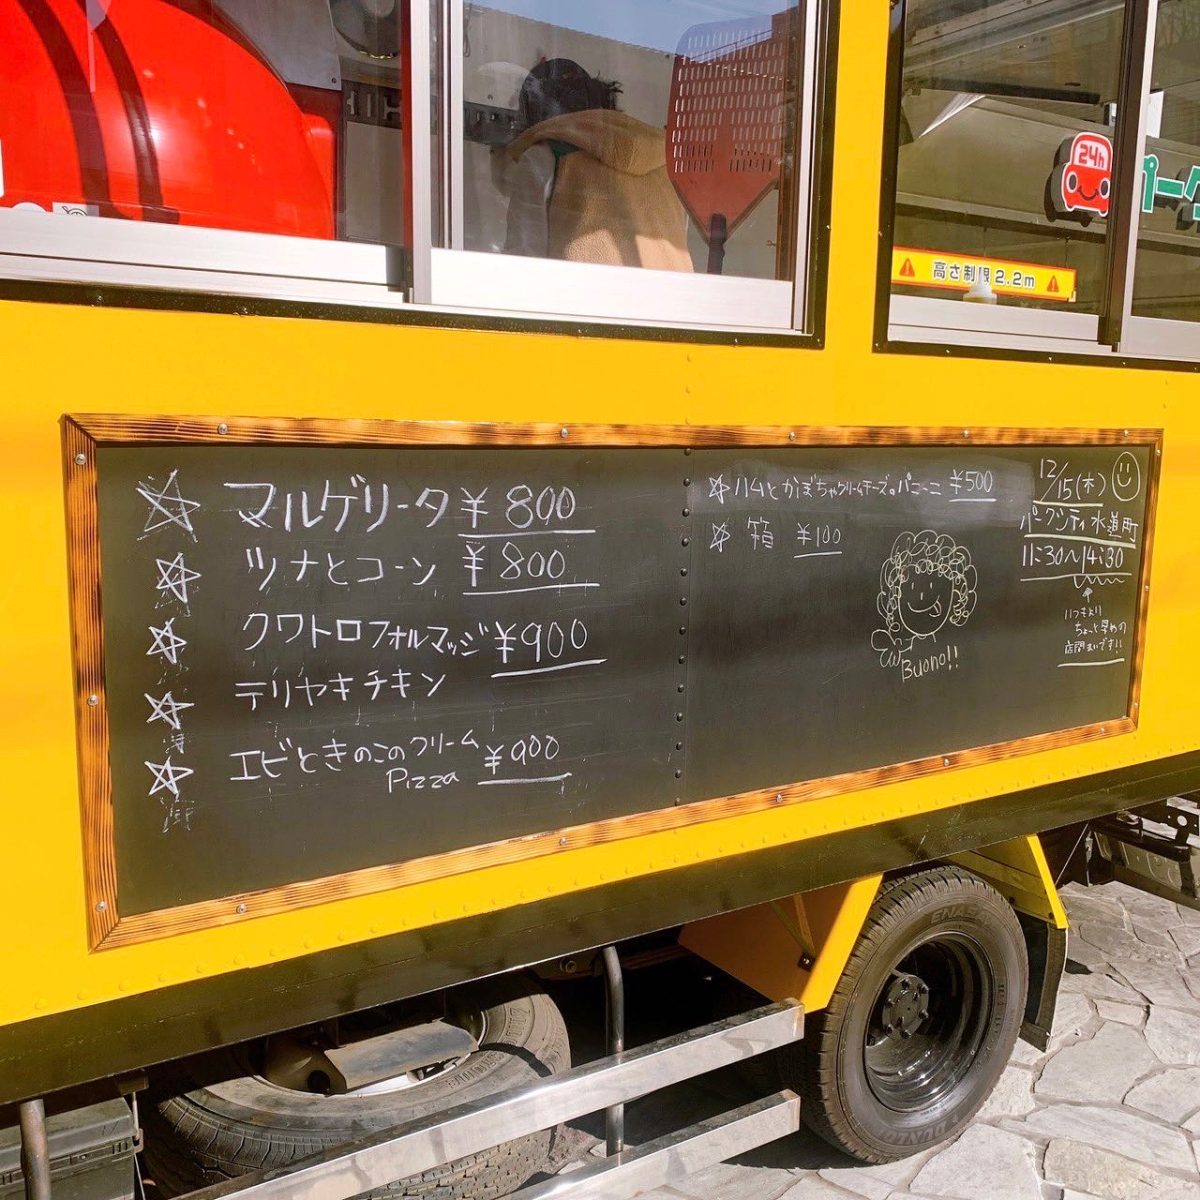 24h
パーク
高さ制限2.2m
マルゲリータ ¥800
ツナとコーン ¥800
クワトロフォルマッジ ¥900
テリヤキチキン
エビときのこのクリーム ¥900
Pizza
ハムとかぼちゃクリームチーズのパニーニ ¥500
箱 ¥100
Buono!!
12/15(木)
パークシティ水道町
11:30〜14:30
いつもより
ちょっと早めの
店閉まいです!!
DUNLOP